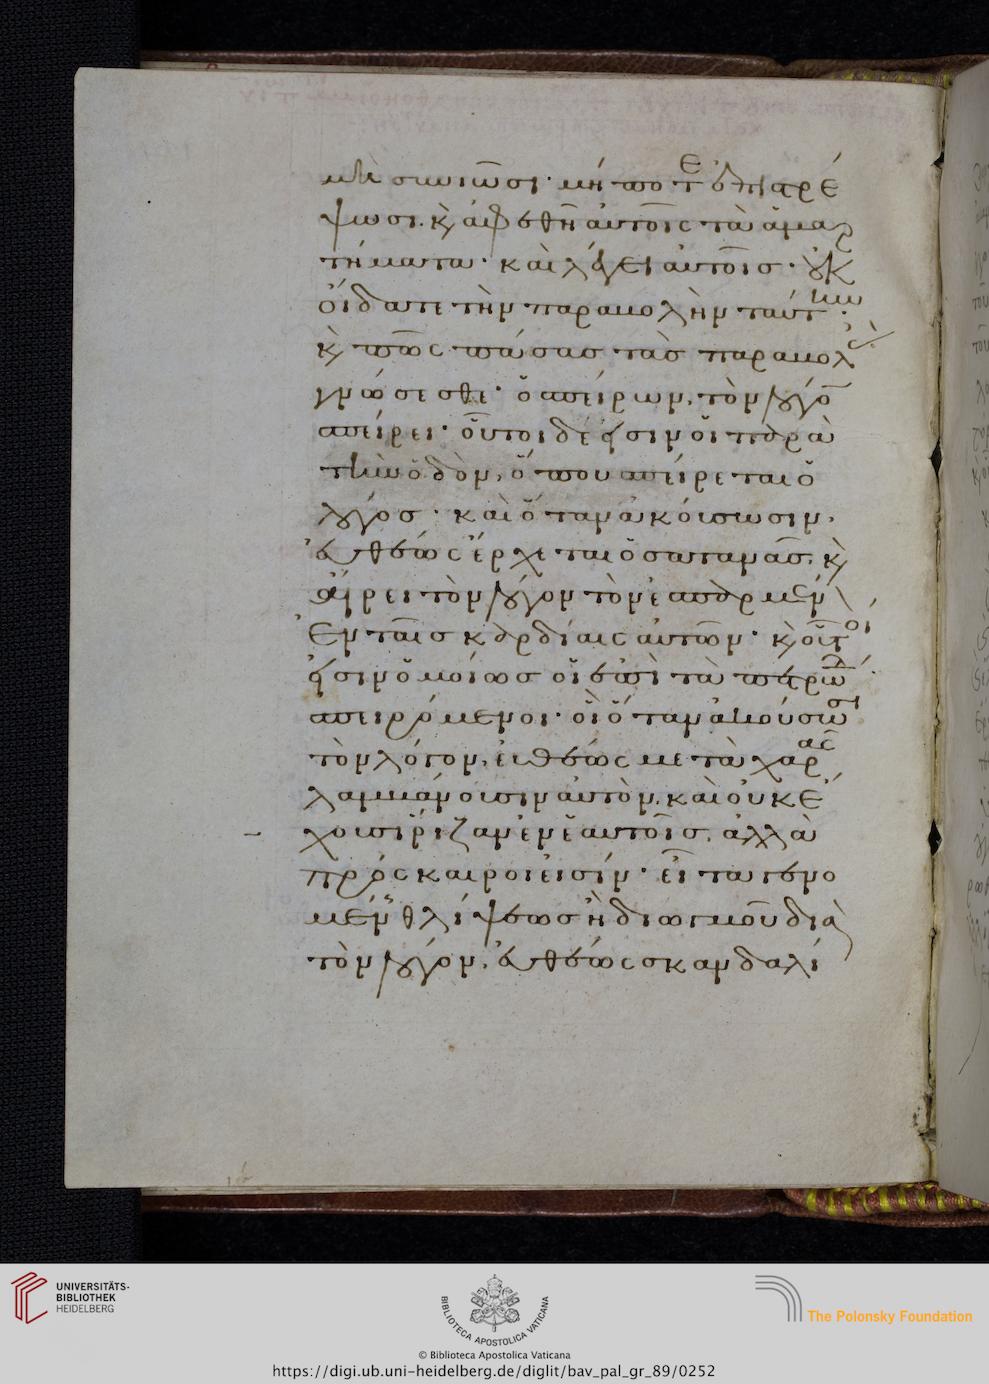 μὴ συνιῶσι· μή ποτε ἐπιστρέ
ψωσι. κ ἀφεθῆ αὐτοῖς τὰ ἁμαρ
τήματα· καὶ λέγει αὐτοῖς· οὐκ
οἴδατε τὴν παραβολὴν ταύτην·
κ πῶς πάσας τὰς παραβολὰς
γνώσεσθε· ὁ σπείρων, τὸν λόγον
σπείρει· οὗτοι δέ εἰσιν οἱ παρὰ
τὴν ὁδὸν, ὅπου σπείρεται ὁ
λόγος· καὶ ὅταν ἀκούσωσιν,
εὐθέως ἔρχεται ὁ σατανᾶς. κ
αἴρει τὸν λόγον τὸν ἐσπαρμέν
ἐν ταῖς καρδίαις αὐτῶν· κ οὗτοί
εἰσιν ὁμοίως οἱ ἐπὶ τὰ πετρώδη
σπειρόμενοι· οἳ ὅταν ἀκούσωσι
τὸν λόγον, εὐθέως μετὰ χαρᾶς
λαμβάνουσιν αὐτὸν. καὶ οὐκ ἔ
χουσι ῥίζαν ἐν ἑαυτοῖς, ἀλλὰ
πρόσκαιροι εἰσίν· εἶτα γενο
μένης θλίψεως ἢ διωγμοῦ διὰ
τὸν λόγον, εὐθέως σκανδαλί
UNIVERSITÄTS-
BIBLIOTHEK
HEIDELBERG
BIBLIOTECA APOSTOLICA VATICANA
The Polonsky Foundation
© Biblioteca Apostolica Vaticana
https://digi.ub.uni-heidelberg.de/diglit/bav_pal_gr_89/0252